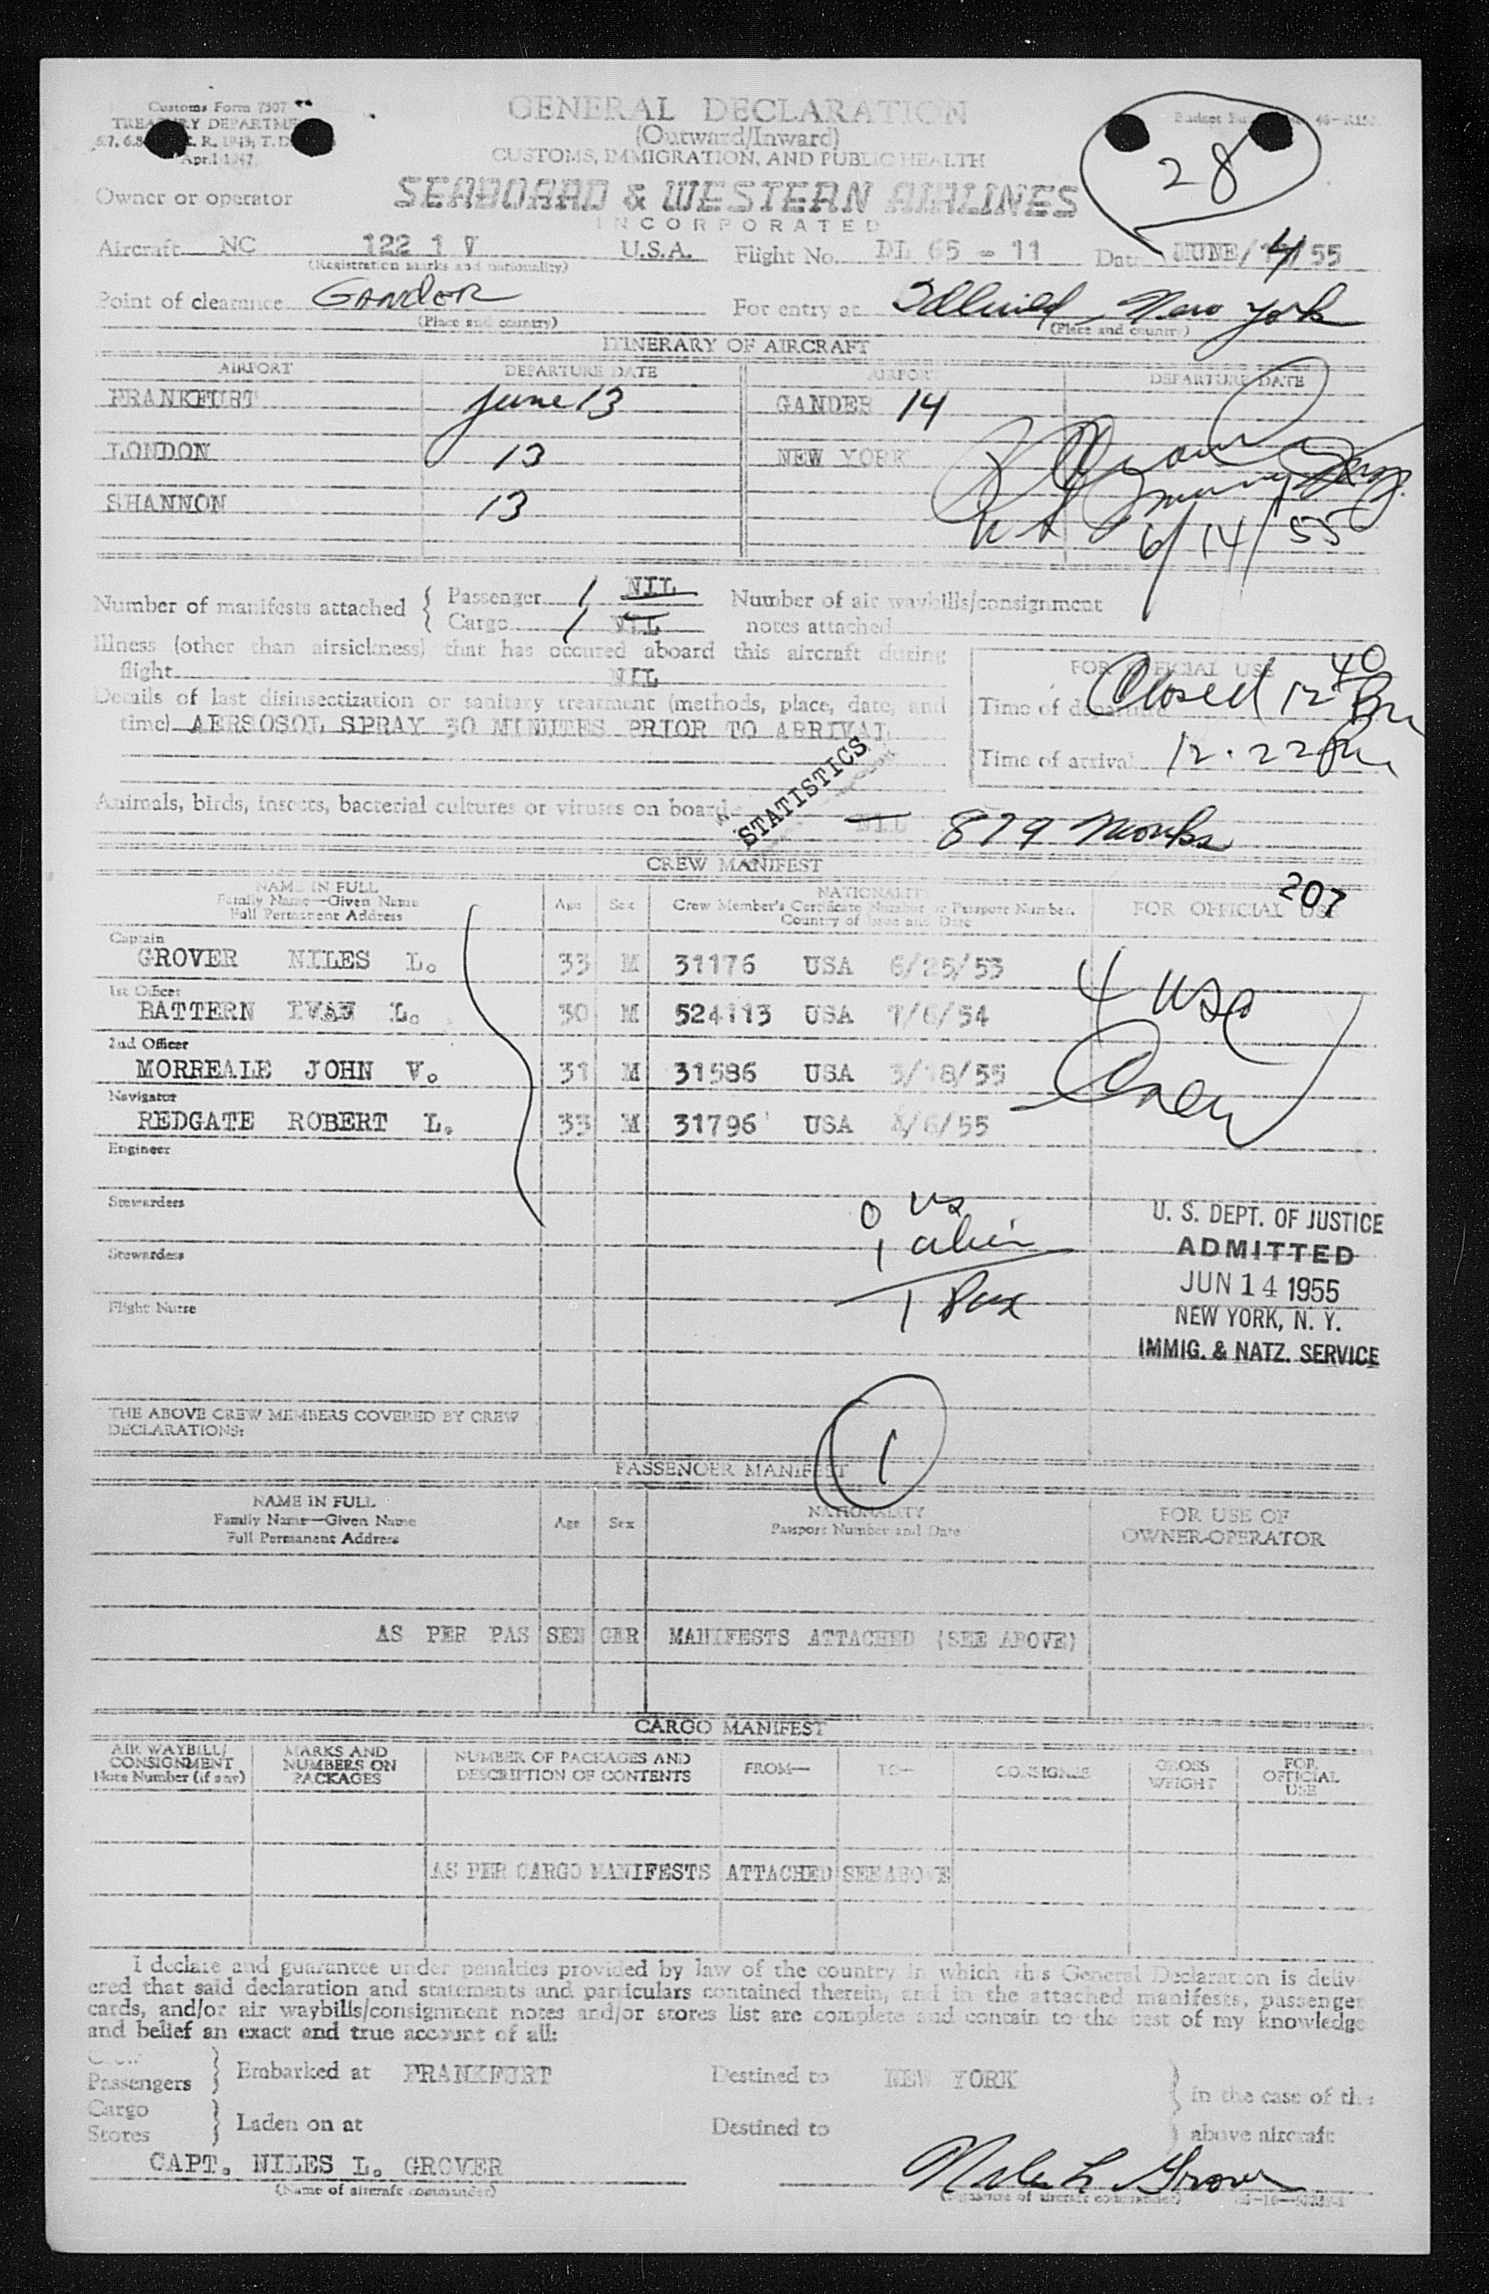 Customs Form 7507
TREASURY DEPARTMENT
April 1947
GENERAL DECLARATION
(Outward/Inward)
CUSTOMS, IMMIGRATION, AND PUBLIC HEALTH
28
Owner or operator SEABOARD & WESTERN AIRLINES
INCORPORATED
Aircraft NC 122 1 V U.S.A. Flight No. DL 65 - 11 Date JUNE/14/55
(Registration marks and nationality)
Point of clearance Gander For entry at Idlewild, New York
(Place and country) (Place and country)
ITINERARY OF AIRCRAFT
AIRPORT DEPARTURE DATE AIRPORT DEPARTURE DATE
FRANKFURT June 13 GANDER 14
LONDON 13 NEW YORK
SHANNON 13
6/14/55
Number of manifests attached { Passenger 1 NIL Number of air waybills/consignment
Cargo 1 NIL notes attached
Illness (other than airsickness) that has occured aboard this aircraft during
flight NIL
FOR OFFICIAL USE
Details of last disinsectization or sanitary treatment (methods, place, date, and
time) AERSOSOL SPRAY 30 MINUTES PRIOR TO ARRIVAL
Time of departure Closed 12 40 Pm
Time of arrival 12.22 Pm
STATISTICS
Animals, birds, insects, bacterial cultures or viruses on board NIL 879 Monks
CREW MANIFEST
NAME IN FULL
Family Name—Given Name
Full Permanent Address
Age Sex
NATIONALITY
Crew Member's Certificate Number or Passport Number.
Country of Issue and Date
FOR OFFICIAL USE
207
Captain
GROVER NILES L. 33 M 31176 USA 6/25/53
1st Officer
BATTERN IVAN L. 30 M 524113 USA 7/6/54
4 USC
2nd Officer
MORREALE JOHN V. 31 M 31586 USA 3/18/55
Crew
Navigator
REDGATE ROBERT L. 33 M 31796 USA 4/6/55
Engineer
Stewardess
0 US
1 alien
1 Pax
Stewardess
Flight Nurse
U. S. DEPT. OF JUSTICE
ADMITTED
JUN 14 1955
NEW YORK, N. Y.
IMMIG. & NATZ. SERVICE
THE ABOVE CREW MEMBERS COVERED BY CREW
DECLARATIONS:
1
PASSENGER MANIFEST
NAME IN FULL
Family Name—Given Name
Full Permanent Address
Age Sex
NATIONALITY
Passport Number and Date
FOR USE OF
OWNER-OPERATOR
AS PER PAS SEN GER MANIFESTS ATTACHED (SEE ABOVE)
CARGO MANIFEST
AIR WAYBILL/
CONSIGNMENT
Note Number (if any)
MARKS AND
NUMBERS ON
PACKAGES
NUMBER OF PACKAGES AND
DESCRIPTION OF CONTENTS
FROM— TO— CONSIGNEE
GROSS
WEIGHT
FOR
OFFICIAL
USE
AS PER CARGO MANIFESTS ATTACHED SEE ABOVE
I declare and guarantee under penalties provided by law of the country in which this General Declaration is deliv
ered that said declaration and statements and particulars contained therein, and in the attached manifests, passenger
cards, and/or air waybills/consignment notes and/or stores list are complete and contain to the best of my knowledge
and belief an exact and true account of all:
Crew
Passengers } Embarked at FRANKFURT Destined to NEW YORK } in the case of the
Cargo
Stores } Laden on at Destined to } above aircraft
CAPT. NILES L. GROVER Niles L Grover
(Name of aircraft commander) (Signature of aircraft commander)